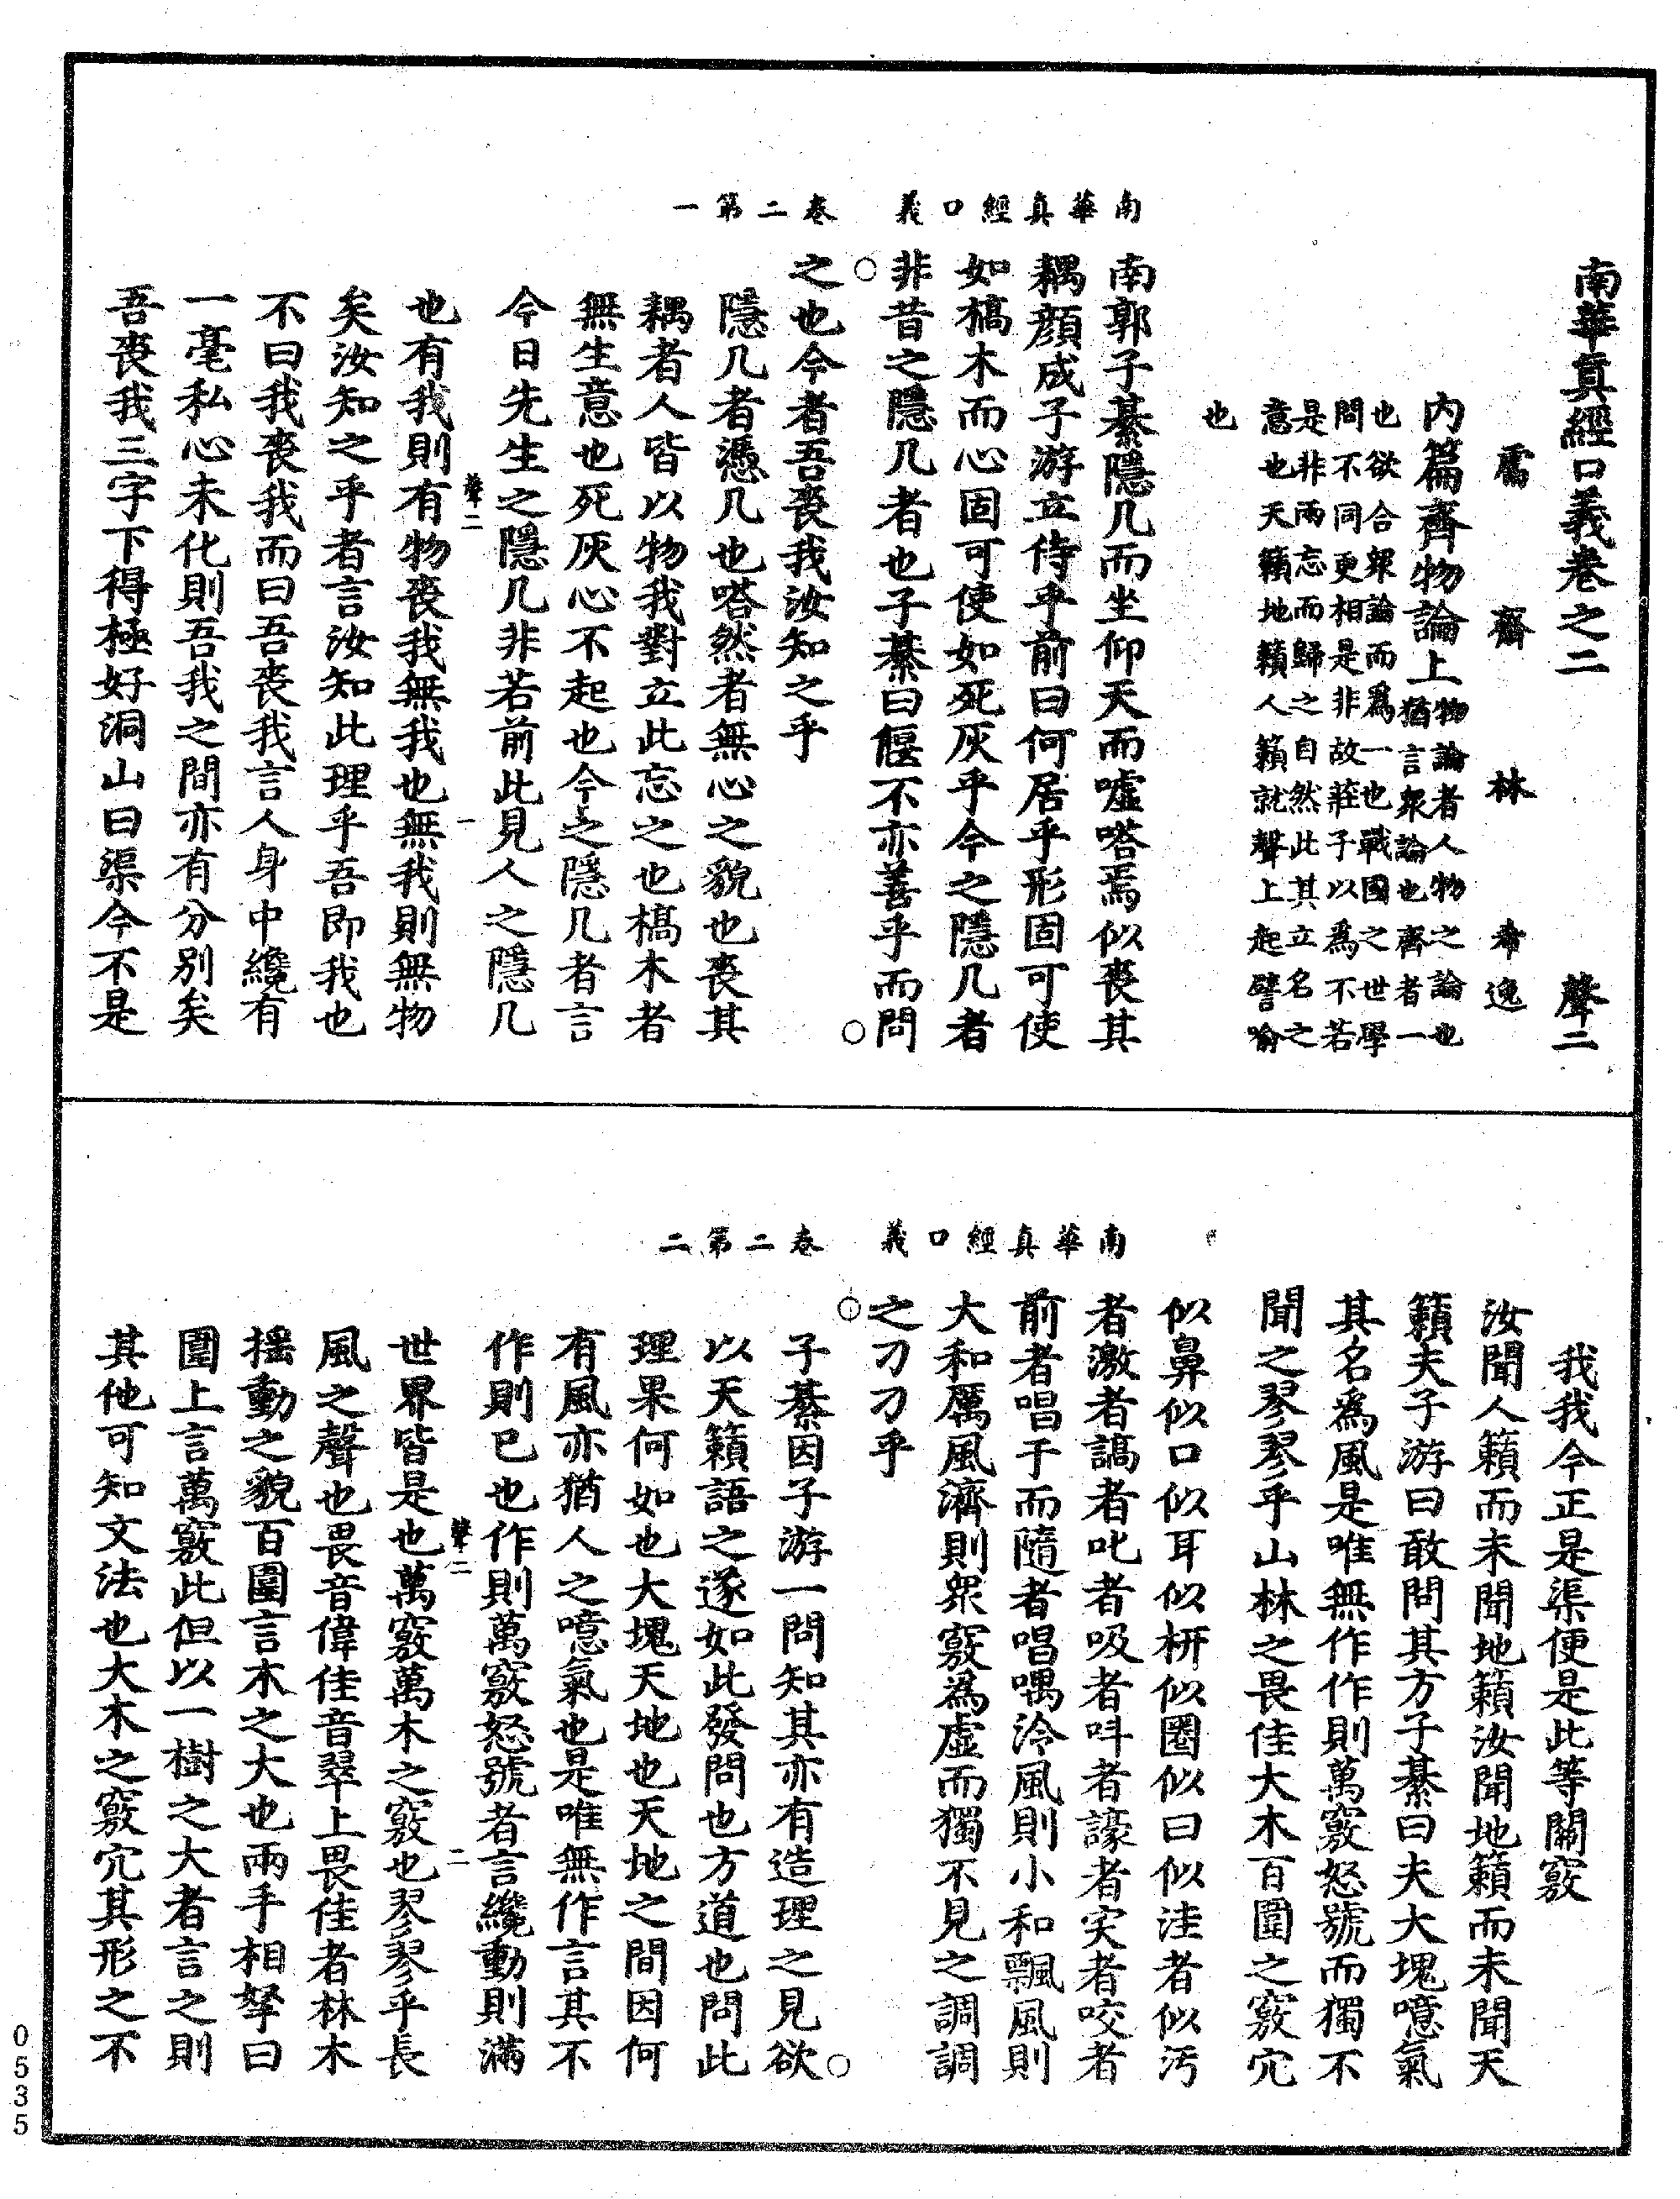 南華真經口義卷之二　聲二
鬳齋林希逸
內篇齊物論上
物論者人物之論也
猶言衆論也齊者一
也欲合衆論而爲一也戰國之世學
問不同更相是非故莊子以爲不若
是非兩忘而歸之自然此其立名之
意也天籟地籟人籟就聲上起譬喻
也
南華真經口義　卷二第一
南郭子綦隱几而坐仰天而噓嗒焉似喪其
耦顔成子游立侍乎前曰何居乎形固可使
如槁木而心固可使如死灰乎今之隱几者
非昔之隱几者也子綦曰偃不亦善乎而問
○之也今者吾喪我汝知之乎○
隱几者憑几也嗒然者無心之貌也喪其
耦者人皆以物我對立此忘之也槁木者
無生意也死灰心不起也今之隱几者言
今日先生之隱几非若前此見人之隱几
聲二　一
也有我則有物喪我無我也無我則無物
矣汝知之乎者言汝知此理乎吾即我也
不曰我喪我而曰吾喪我言人身中纔有
一毫私心未化則吾我之間亦有分別矣
吾喪我三字下得極好洞山曰渠今不是
我我今正是渠便是此等關竅
汝聞人籟而未聞地籟汝聞地籟而未聞天
籟夫子游曰敢問其方子綦曰夫大塊噫氣
其名為風是唯無作作則萬竅怒號而獨不
聞之翏翏乎山林之畏佳大木百圍之竅穴
南華真經口義　卷二第二
似鼻似口似耳似枅似圈似臼似洼者似污
者激者謞者叱者吸者叫者譹者宎者咬者
前者唱于而隨者唱喁泠風則小和飄風則
大和厲風濟則衆竅為虛而獨不見之調調
○之刁刁乎○
子綦因子游一問知其亦有造理之見欲
以天籟語之遂如此發問也方道也問此
理果何如也大塊天地也天地之間因何
有風亦猶人之噫氣也是唯無作言其不
作則已也作則萬竅怒號者言纔動則滿
聲二　二
世界皆是也萬竅萬木之竅也翏翏乎長
風之聲也畏音偉佳音翠上畏佳者林木
揺動之貌百圍言木之大也兩手相拏曰
圍上言萬竅此但以一樹之大者言之則
其他可知文法也大木之竅穴其形之不
0535